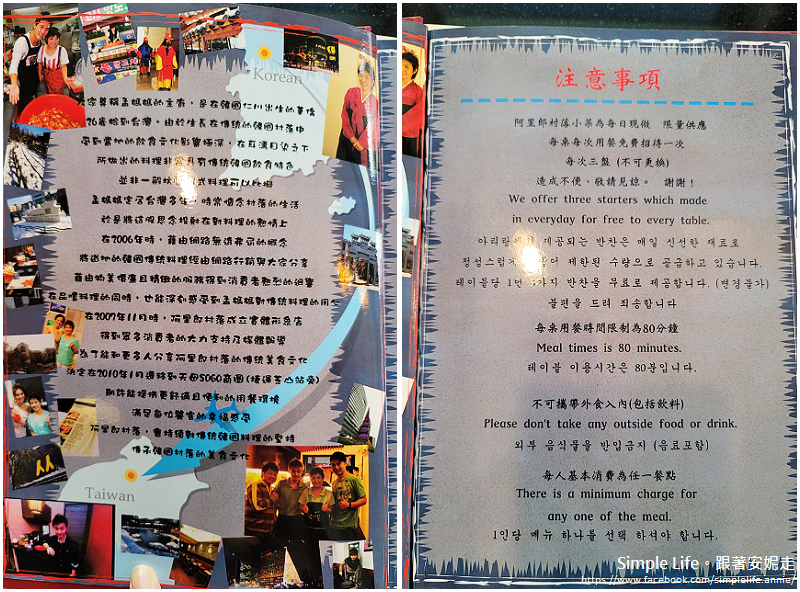 Korean
大家尊稱孟媽媽的主廚，是在韓國仁川出生的華僑
26歲給到台灣。由於生長在傳統的韓國村落中
受到當地的飲食文化影響極深，在耳濡目染之下
所做出的料理非常具有傳統韓國飲食特色
並非一般坊 式料理可以比擬
孟媽媽定居台灣多年，時常懷念村落的生活
於是將這個思念投射在對料理的熱情上
在2006年時，藉由網路無遠弗屆的概念
將道地的韓國傳統料理經由網路行銷與大家分享
藉由物美價廉且精緻的服務得到消費者熱烈的迴響
在品嚐料理的同時，也能深刻感受到孟媽媽對傳統料理的用心
在2007年11月時，阿里郎村落成立實體形象店
得到眾多消費者的大力支持及媒體報導
為了能和更多人分享阿里郎村落的傳統美食文化
決定在2010年1月遷移到天母SOGO商圈(捷運芝山站旁)
期許能提供更舒適且便利的用餐環境
滿足每位饕客的幸福感受
阿里郎村落，會持續對傳統韓國料理的堅持
傳承韓國村落的美食文化
Taiwan
注意事項
阿里郎村落小菜為每日現做 限量供應
每桌每次用餐免費招待一次
每次三盤 (不可更換)
造成不便，敬請見諒。 謝謝！
We offer three starters which made
in everyday for free to every table.
아리랑 제공되는 반찬은 매일 신선한 재료로
정성스럽게 들어 제한된 수량으로 공급하고 있습니다.
테이블당 1번 가지 반찬을 무료로 제공합니다. (변경불가)
불편을 드려 죄송합니다
每桌用餐時間限制為80分鐘
Meal times is 80 minutes.
테이블 이용시간은 80분입니다.
不可攜帶外食入內(包括飲料)
Please don't take any outside food or drink.
외부 음식물을 반입금지 (음료포함)
每人基本消費為任一餐點
There is a minimum charge for
any one of the meal.
1인당 메뉴 하나를 선택 하셔야 합니다.
Simple Life。跟著安妮走
https://www.facebook.com/simplelife.annie/